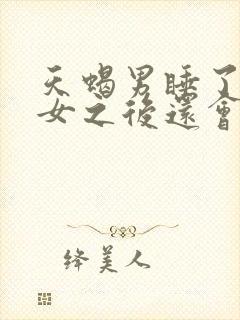 天蝎男睡了
女之後還會
絳美人